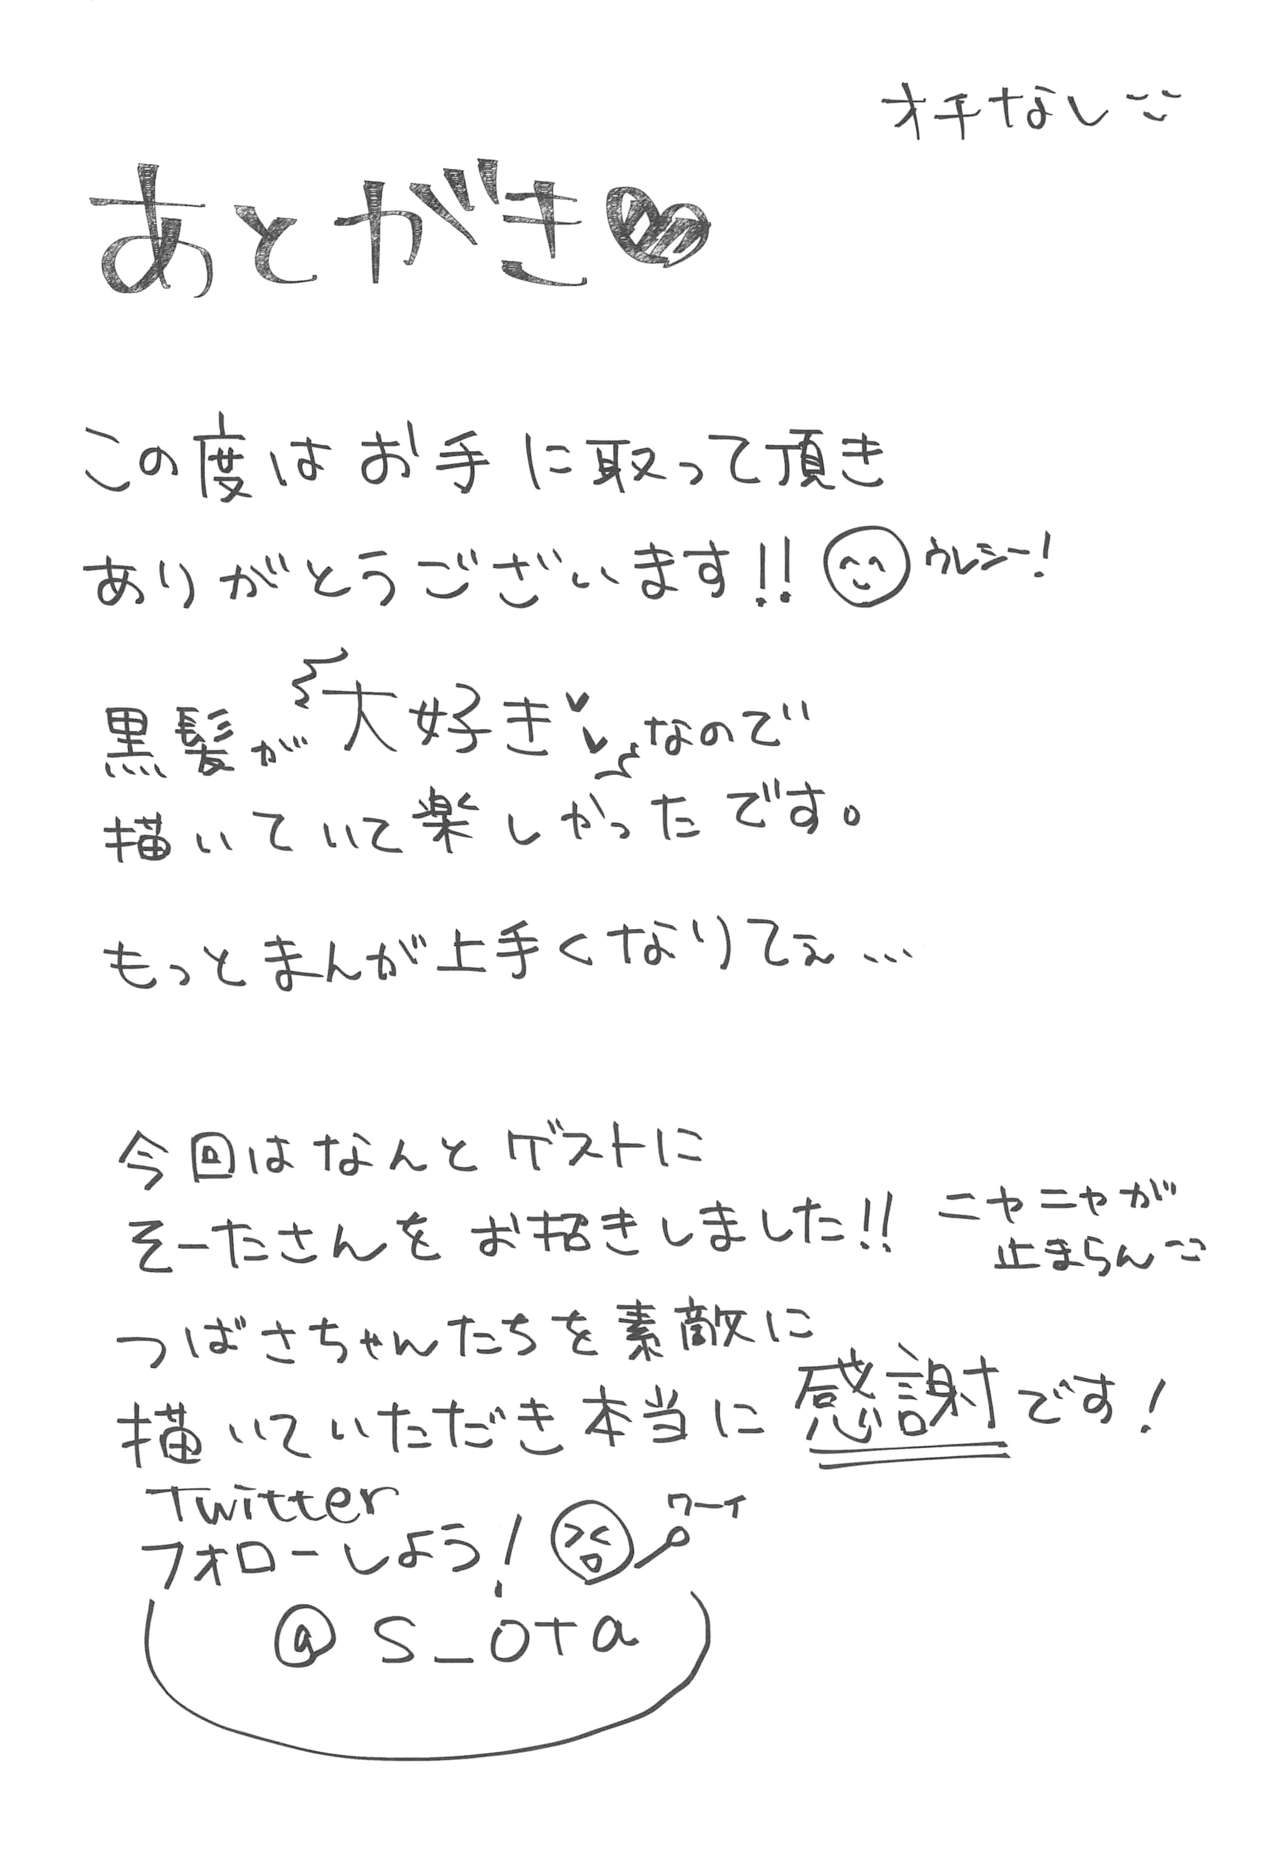 オチなし
あとがき
この度はお手に取って頂き
ありがとうございます!!
ウレシー!
黒髪が大好きなので
描いていて楽しかったです。
もっとまんが上手くなりてぇ…
今回はなんとゲストに
そーたさんをお招きしました!!
ニヤニヤが
止まらん
つばさちゃんたちを素敵に
描いていただき本当に感謝です!
Twitter
フォローしよう!
ワーイ
@s_ota